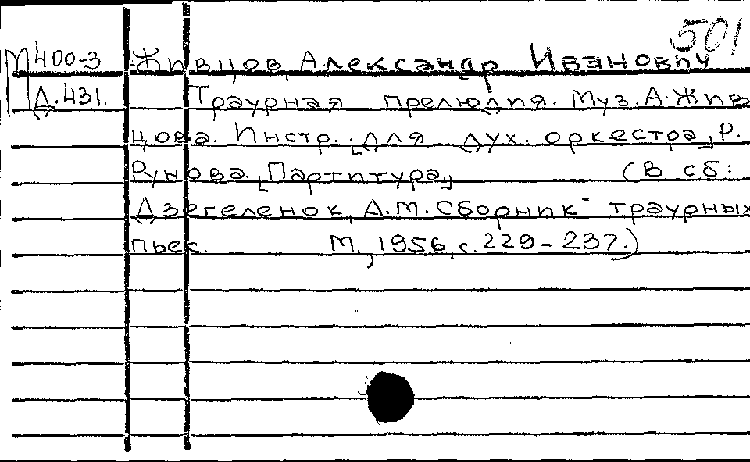 501
М400-3 Живцов, Александр Иванович
Д.431. Траурная прелюдия. Муз. А. Жив
цова. Инстр. [для дух. оркестра] Р.
Рунова. [Партитура] (В сб:
Дзегеленок, А.М. Сборник траурных
пьес. М., 1956, с. 229-237.)